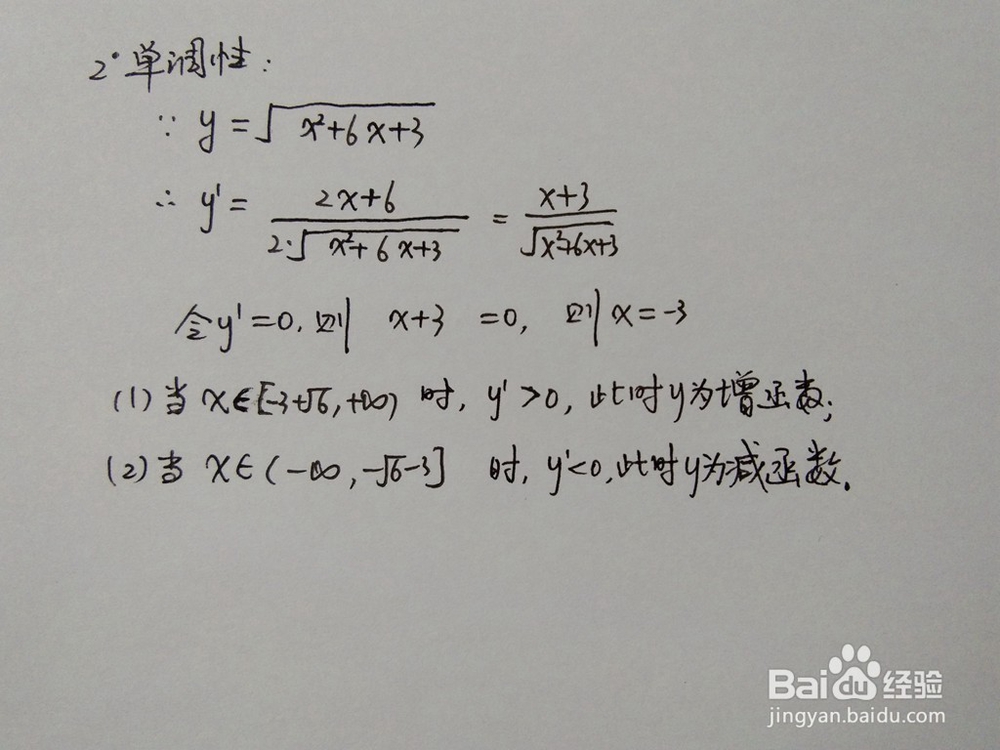 2° 单调性:
∵ y = √(x²+6x+3)
∴ y' = (2x+6)/(2·√(x²+6x+3)) = (x+3)/√(x²+6x+3)
令y'=0,则 x+3 =0, 则x=-3
(1)当 x∈[-3+√6,+∞) 时, y'>0, 此时y为增函数;
(2)当 x∈(-∞,-√6-3] 时, y'<0,此时y为减函数.
Baidu经验
jingyan.baidu.com